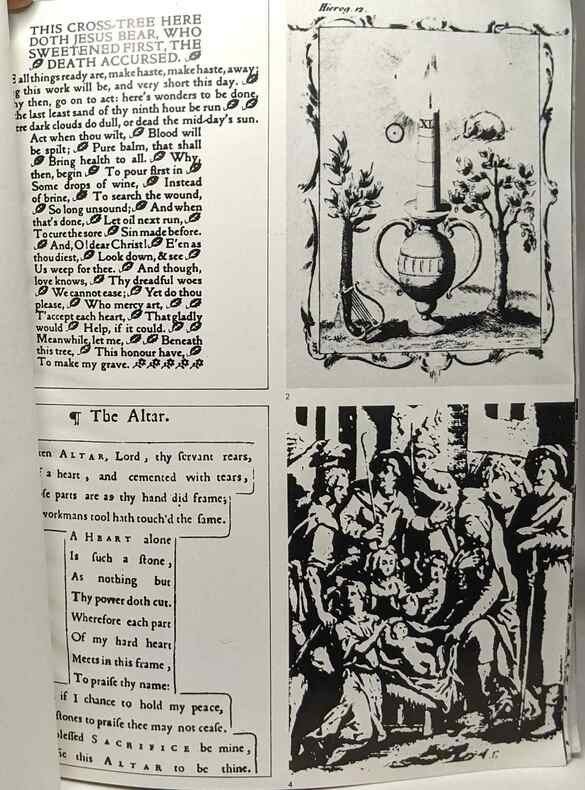 THIS CROSS-TREE HERE
DOTH JESUS BEAR, WHO
SWEETENED FIRST, THE
DEATH ACCURSED.
all things ready are, make haste, make haste, away;
g this work will be, and very short this day.
hy then, go on to act: here's wonders to be done,
the last least sand of thy ninth hour be run
tre dark clouds do dull, or dead the mid-day's sun.
Act when thou wilt, Blood will
be spilt; Pure balm, that shall
Bring health to all. Why,
then, begin To pour first in
Some drops of wine, Instead
of brine, To search the wound,
So long unsound; And when
that's done, Let oil next run,
To cure the sore Sin made before.
And, O! dear Christ! E'en as
thou diest, Look down, & see
Us weep for thee. And though,
love knows, Thy dreadful woes
We cannot ease; Yet do thou
please, Who mercy art,
T'accept each heart, That gladly
would Help, if it could.
Meanwhile, let me, Beneath
this tree, This honour have,
To make my grave.
Hierog. 12.
XI
2
¶ The Altar.
ken ALTAR, Lord, thy servant rears,
f a heart, and cemented with tears,
ose parts are as thy hand did frame;
workmans tool hath touch'd the same.
A HEART alone
Is such a stone,
As nothing but
Thy power doth cut.
Wherefore each part
Of my hard heart
Meets in this frame,
To praise thy name:
if I chance to hold my peace,
stones to praise thee may not cease.
blessed SACRIFICE be mine,
ie this ALTAR to be thine.
4